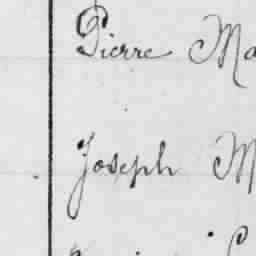 Pierre Ma
Joseph M